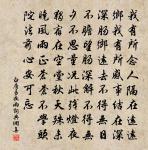 我有所念人隔在遠遠
鄉我有所感事結在深
深腸鄉遠去不得無日
不瞻望腸深解不得無
夕不思量況此殘燈夜
獨宿在空堂秋天殊未
曉風雨正蒼蒼不學頭
陀法前心安可忘
白居易夜雨